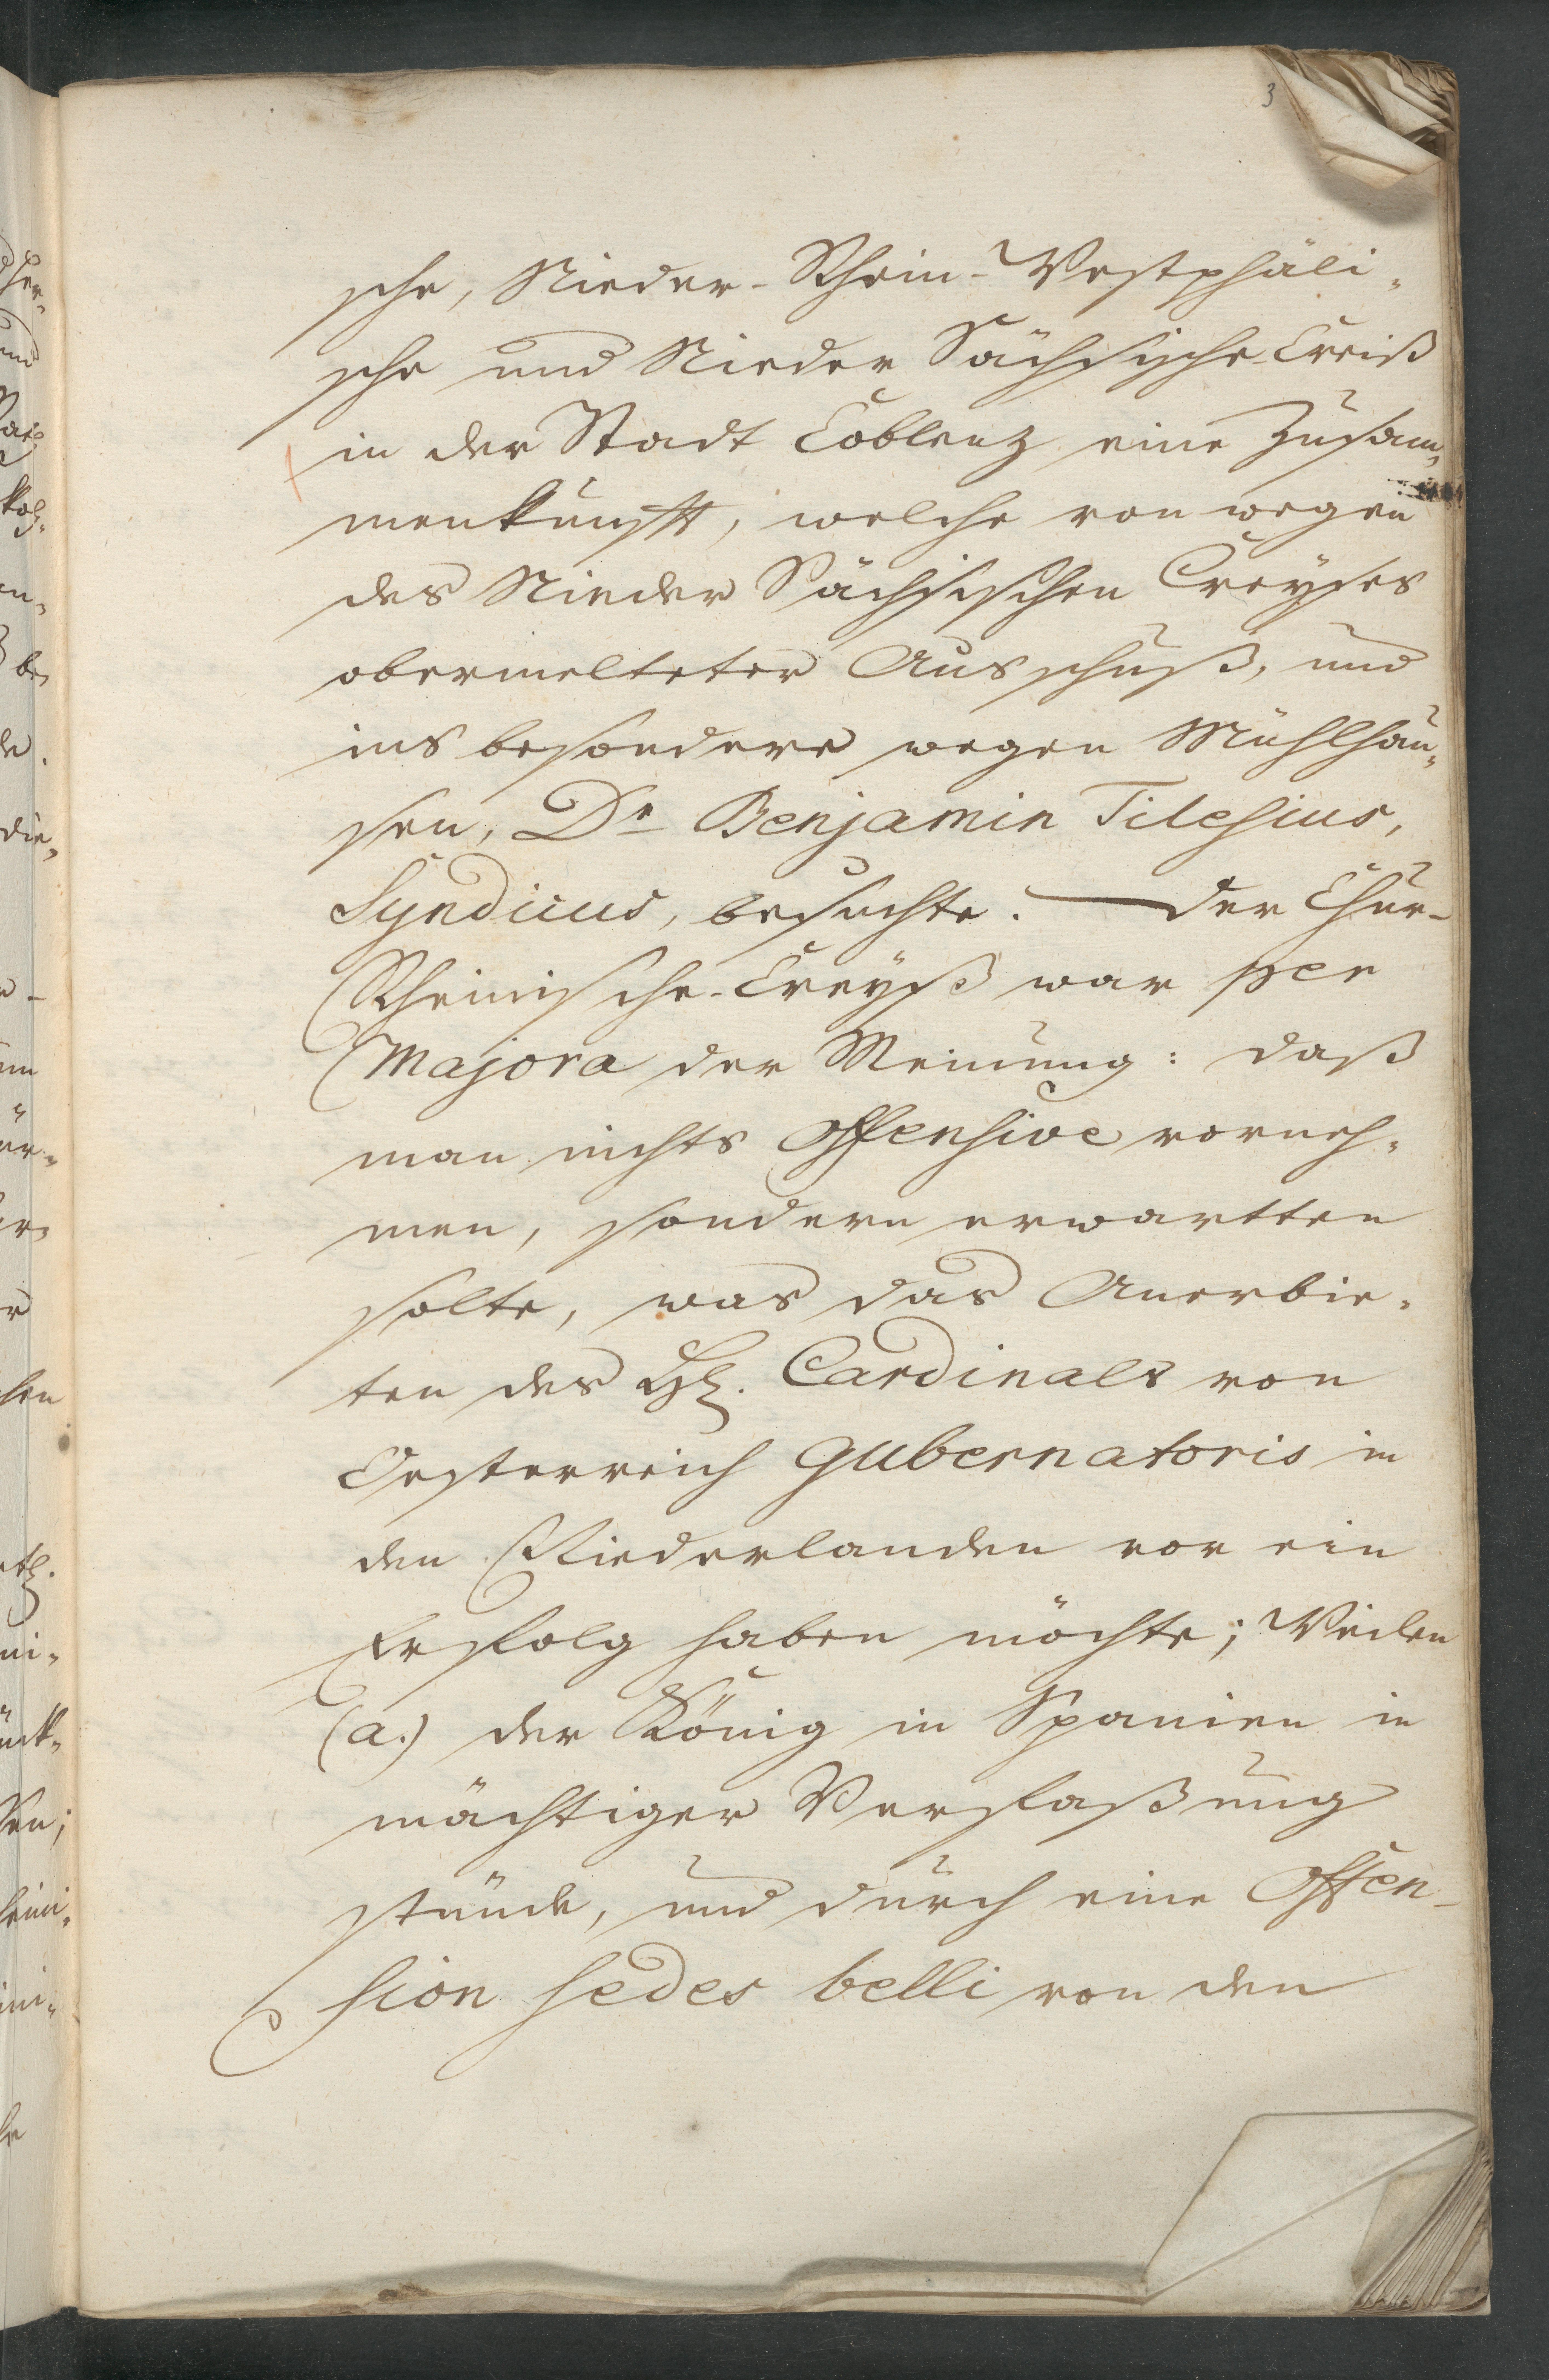 3
sche, Nieder-Rhein-Westphäli-
sche und Nieder Sächsische Creiß
in der Stadt Coblenz eine Zusam-
menkunfft, welche von wegen
des Nieder Sächsischen Creyses
obermelteter Ausschuß, und
ins besondere wegen Mühlhau-
sen, Dr Benjamin Tilesius,
Syndicus, besuchte. — Der Chur-
Rheinische-Creyß war per
Majora der Meinung: daß
man nichts Offensive vorneh-
men, sondern erwartten
solte, was das Anerbie-
ten des H. Cardinals von
Oesterreich Gubernatoris in
den Niederlanden vor ein
Erfolg haben möchte; Weilen
(a.) der König in Spanien in
mächtiger Verfaßung
stünde, und durch eine Offen-
sion sedes belli von den